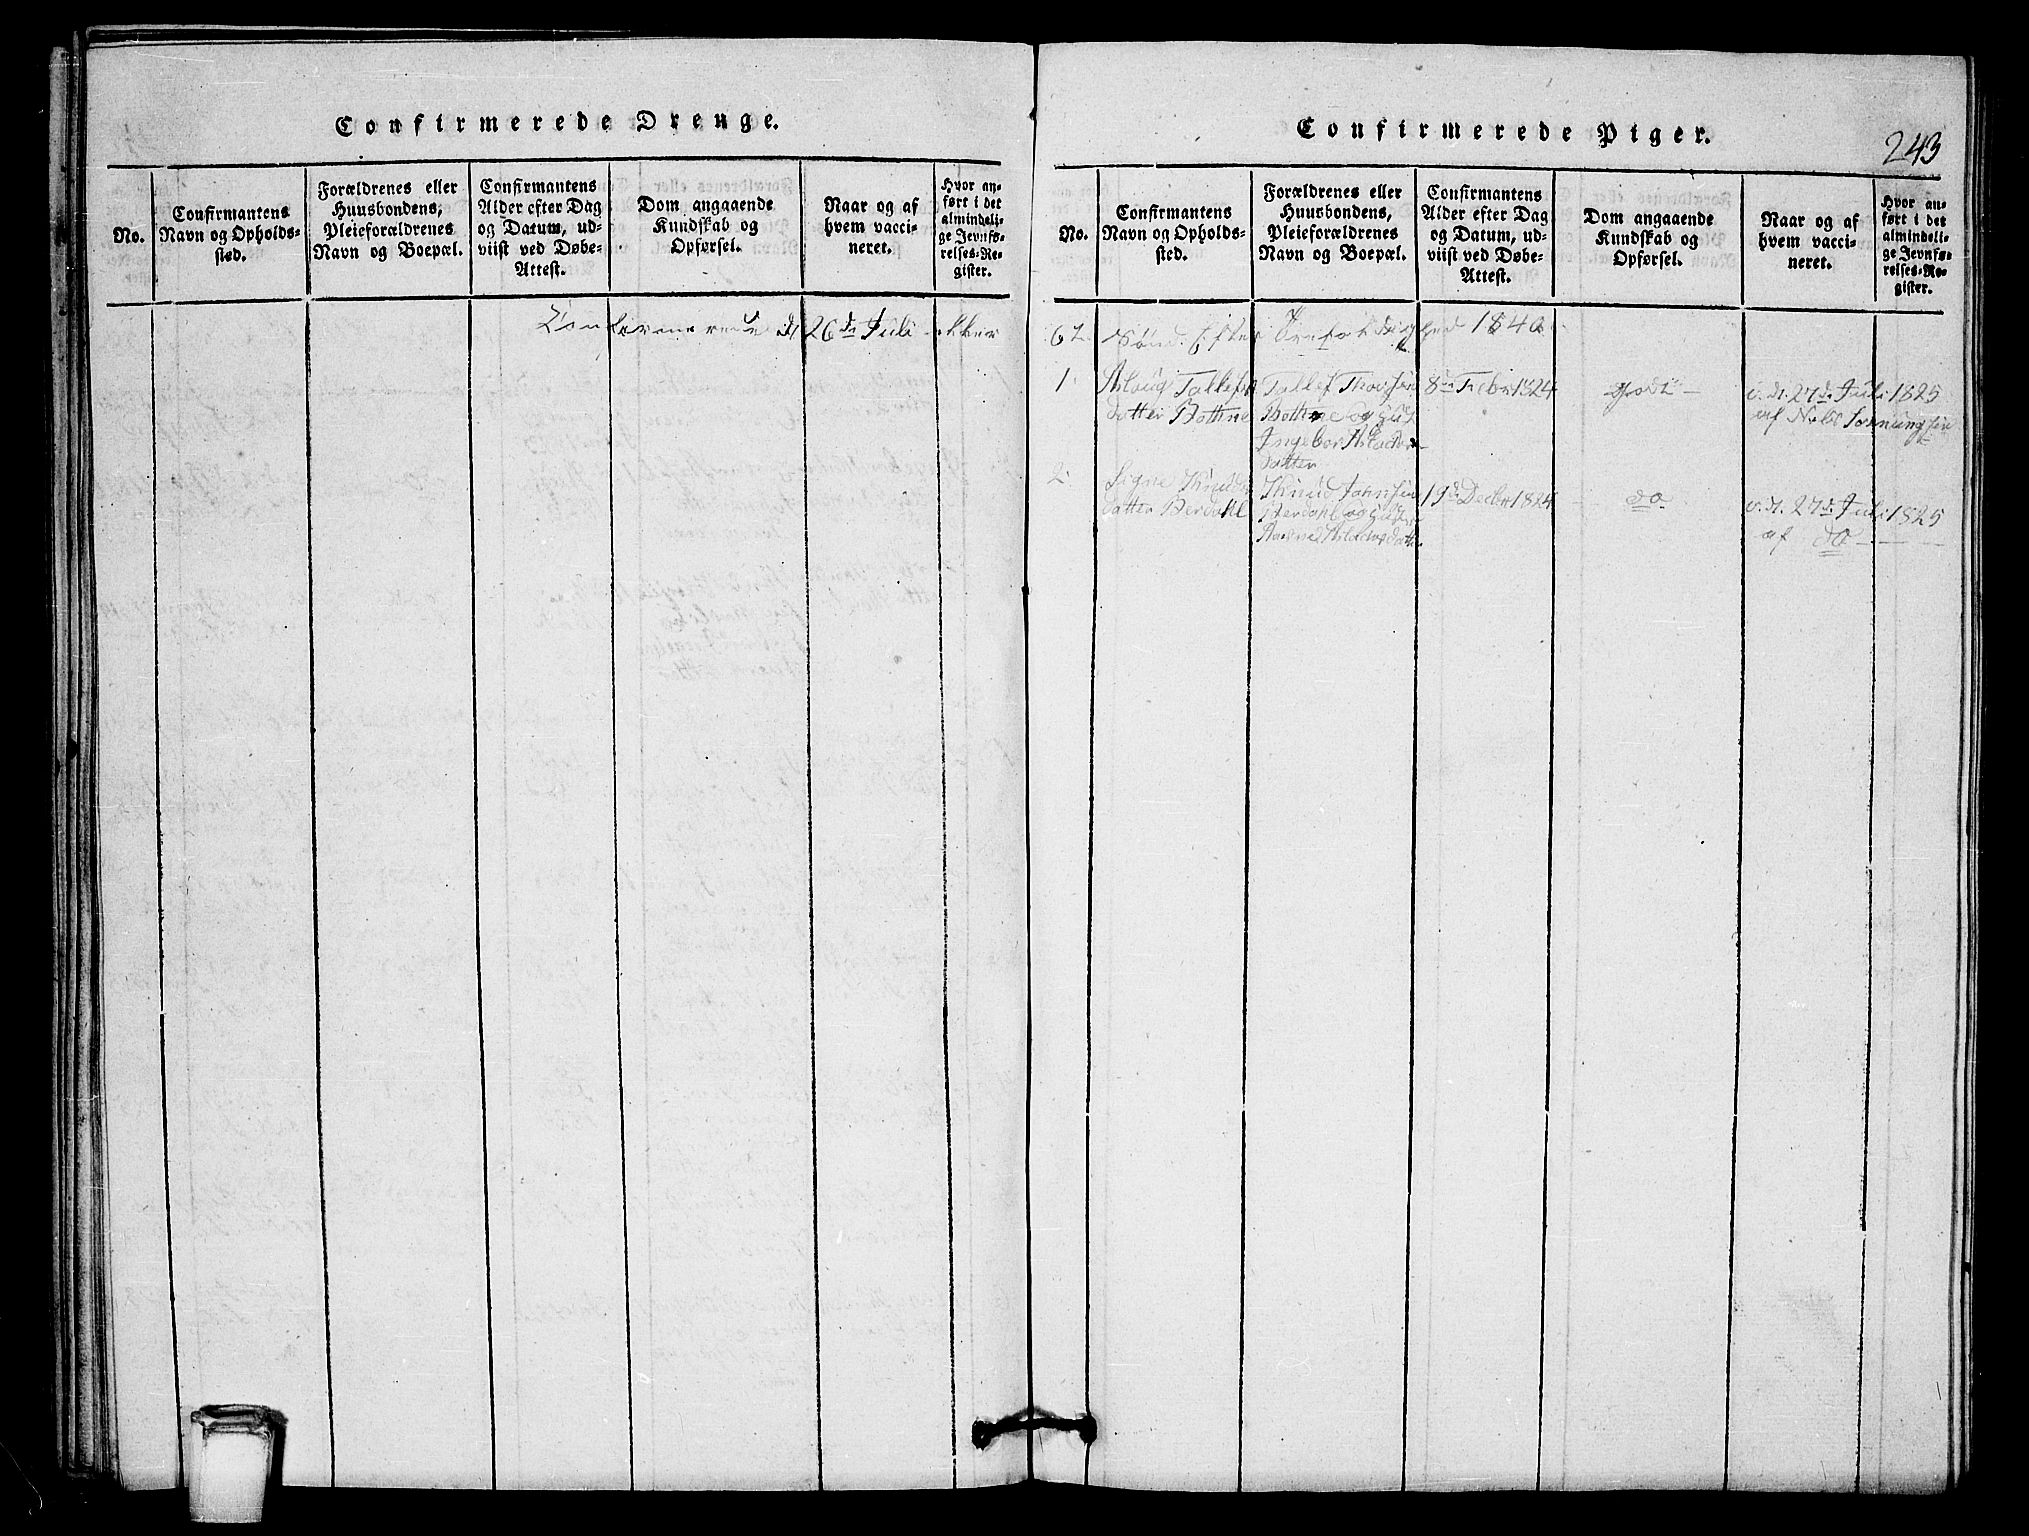 Confirmerede Drenge.
No.
Confirmantens
Navn og Opholds-
sted.
Forældrenes eller
Huusbondens,
Pleieforældrenes
Navn og Boepæl.
Confirmantens
Alder efter Dag
og Datum, ud-
viist ved Døbe-
Attest.
Dom angaaende
Kundskab og
Opførsel.
Naar og af
hvem vacci-
neret.
Hvor an-
ført i det
almindeli-
ge Jevnfø-
relses-Re-
gister.
26de Juli
Confirmerede Piger.
243
No.
Confirmantens
Navn og Opholds-
sted.
Forældrenes eller
Huusbondens,
Pleieforældrenes
Navn og Boepæl.
Confirmantens
Alder efter Dag
og Datum, ud-
viist ved Døbe-
Attest.
Dom angaaende
Kundskab og
Opførsel.
Naar og af
hvem vacci-
neret.
Hvor an-
ført i det
almindeli-
ge Jevnfø-
relses-Re-
gister.
6t. Sønd. Efter Trefoldighed 1840
1
Aslaug Tallefs
datter Bothne
Tallef Thorsen
Bothne og
Ingebor Aslachs
datter
8de Febr 1824
Godt
v. d. 27de Juli 1825
af Nels
2
Signe Knuds
datter Berdahl
Knud Johnsen
Berdahl og
Aasne Aslachsdatter
19de Decbr 1824
do
v. d. 27de Juli 1825
af do